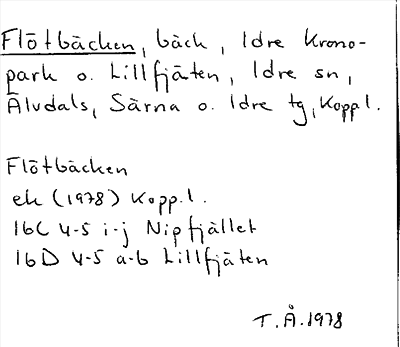 Flötbäcken, bäck, Idre Krono-
park o. Lillfjäten, Idre sn,
Älvdals, Särna o. Idre tg, Kopp.l.
Flötbäcken
ek (1978) Kopp.l.
16C 4-5 i-j Nipfjället
16D 4-5 a-b Lillfjäten
T.Å. 1978